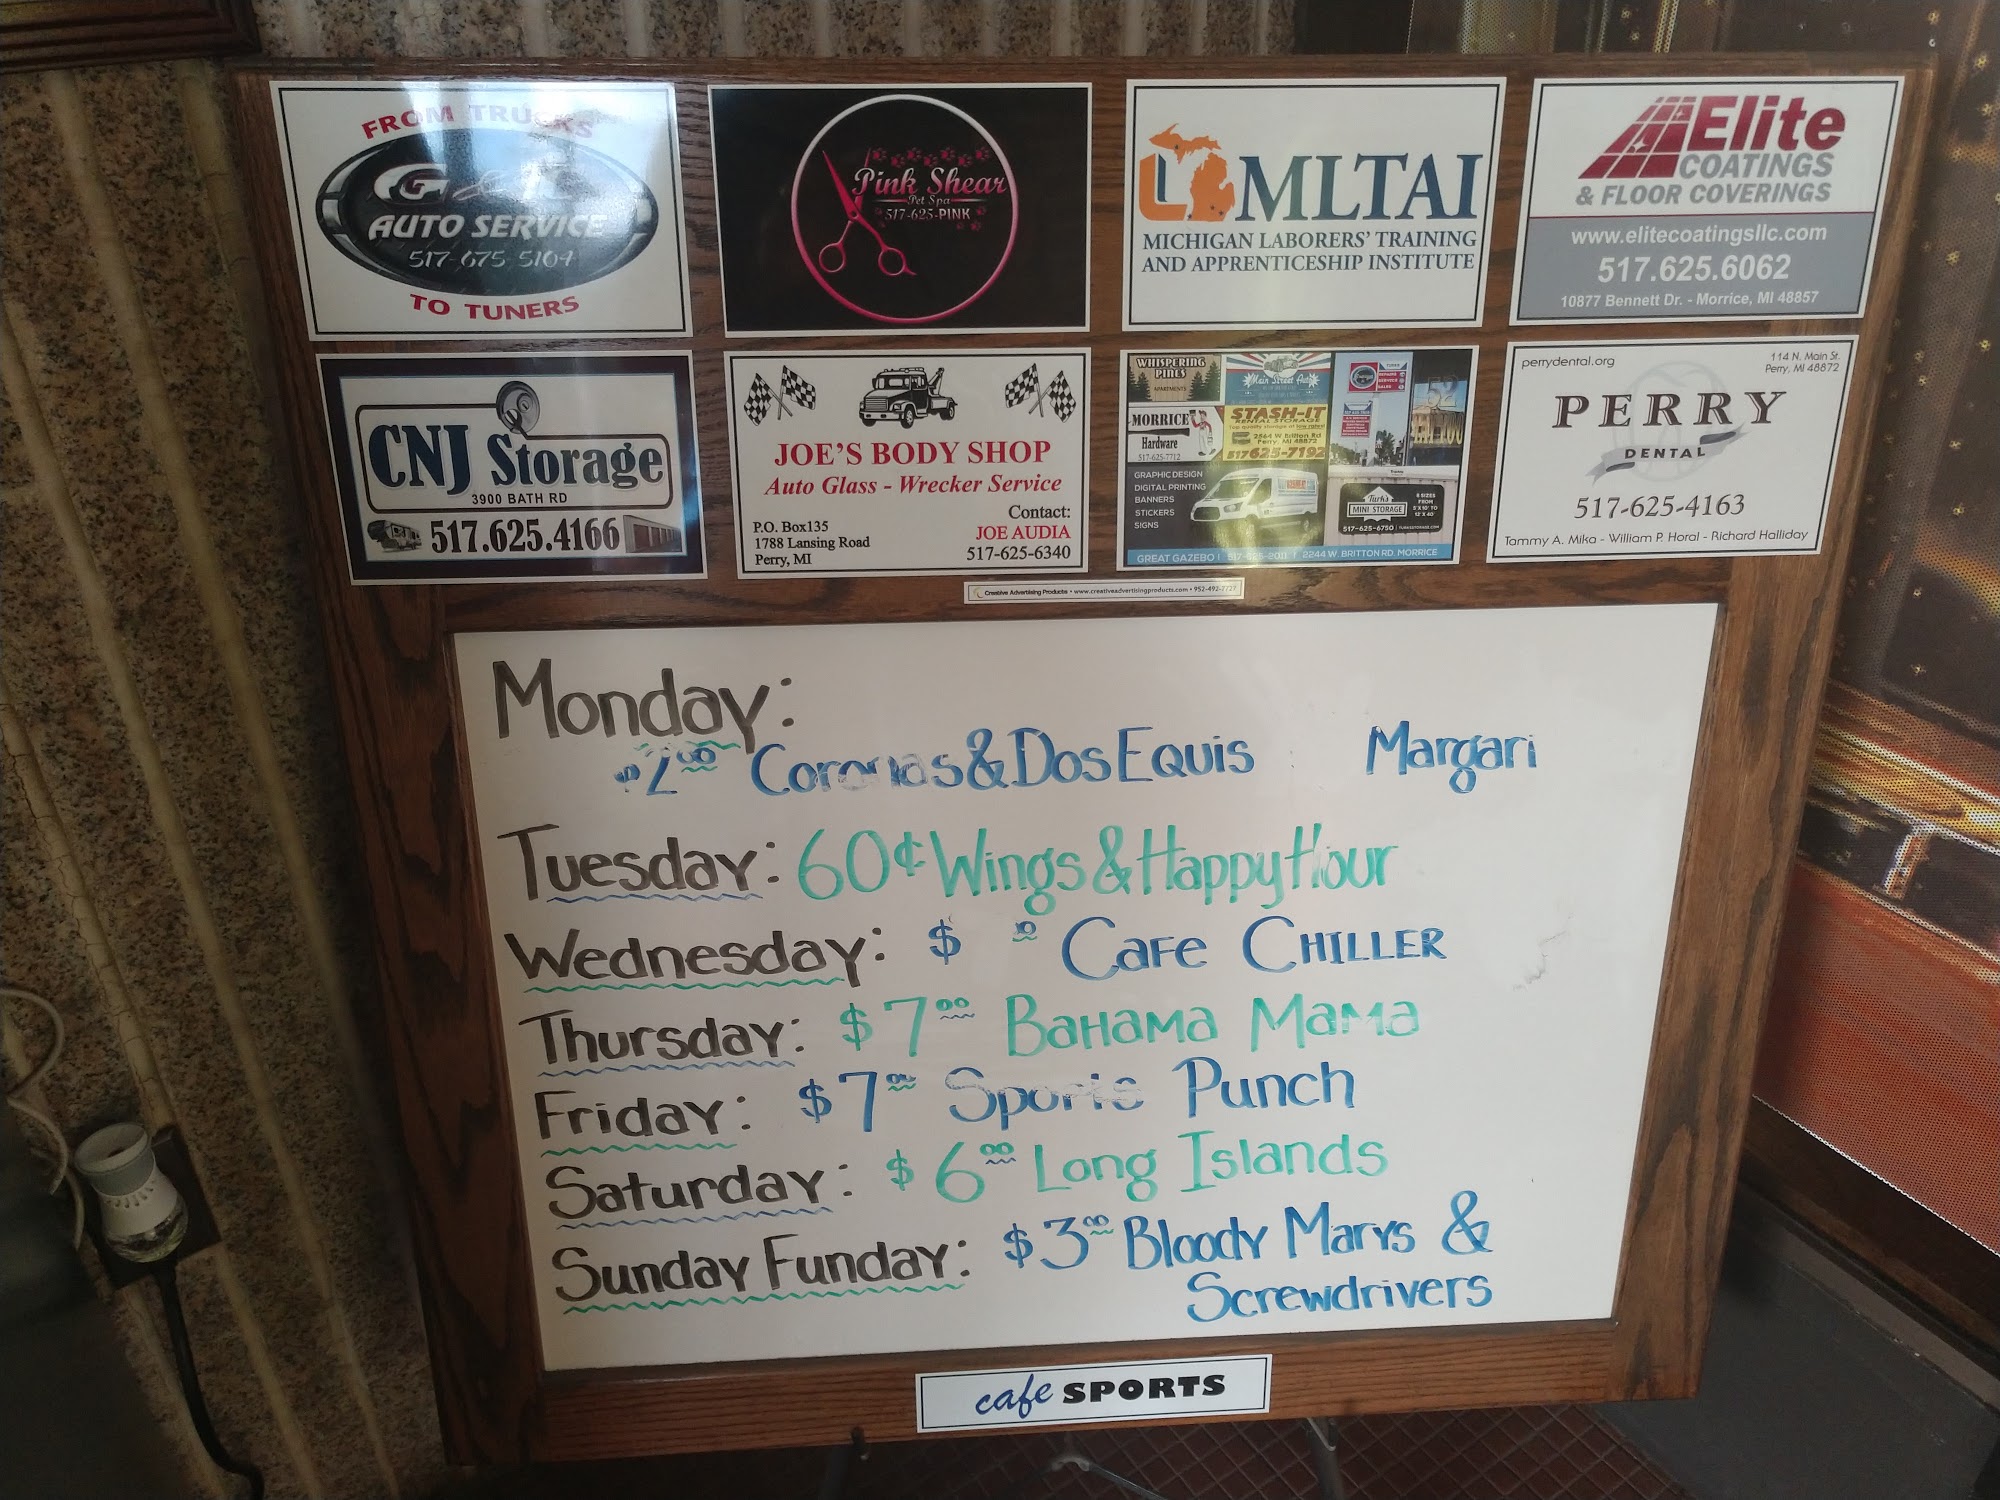 FROM TRUCKS
AUTO SERVICE
517-675-5104
TO TUNERS
Pink Shear
Pet Spa
517-625-PINK
MLTAI
MICHIGAN LABORERS' TRAINING
AND APPRENTICESHIP INSTITUTE
Elite
COATINGS
& FLOOR COVERINGS
www.elitecoatingsllc.com
517.625.6062
10877 Bennett Dr. - Morrice, MI 48857
CNJ Storage
3900 BATH RD
517.625.4166
JOE'S BODY SHOP
Auto Glass - Wrecker Service
P.O. Box135
1788 Lansing Road
Perry, MI
Contact:
JOE AUDIA
517-625-6340
WHISPERING
PINES
APARTMENTS
Main Street
MORRICE
Hardware
517-625-7712
STASH-IT
RENTAL STORAGE
2564 W Britton Rd
Perry, MI 48872
517 625-7192
GRAPHIC DESIGN
DIGITAL PRINTING
BANNERS
STICKERS
SIGNS
Turk's
MINI STORAGE
517-625-6750
GREAT GAZEBO | 517-625-2011 | 2244 W. BRITTON RD. MORRICE
perrydental.org
114 N. Main St.
Perry, MI 48872
PERRY
DENTAL
517-625-4163
Tammy A. Mika - William P. Horal - Richard Halliday
Creative Advertising Products • www.creativeadvertisingproducts.com • 952-492-7727
Monday:
$2.00 Coronas & Dos Equis Margari
Tuesday: 60¢ Wings & Happy Hour
Wednesday: $ Cafe Chiller
Thursday: $7.00 Bahama Mama
Friday: $7.00 Sports Punch
Saturday: $6.00 Long Islands
Sunday Funday: $3.00 Bloody Marys &
Screwdrivers
cafe SPORTS